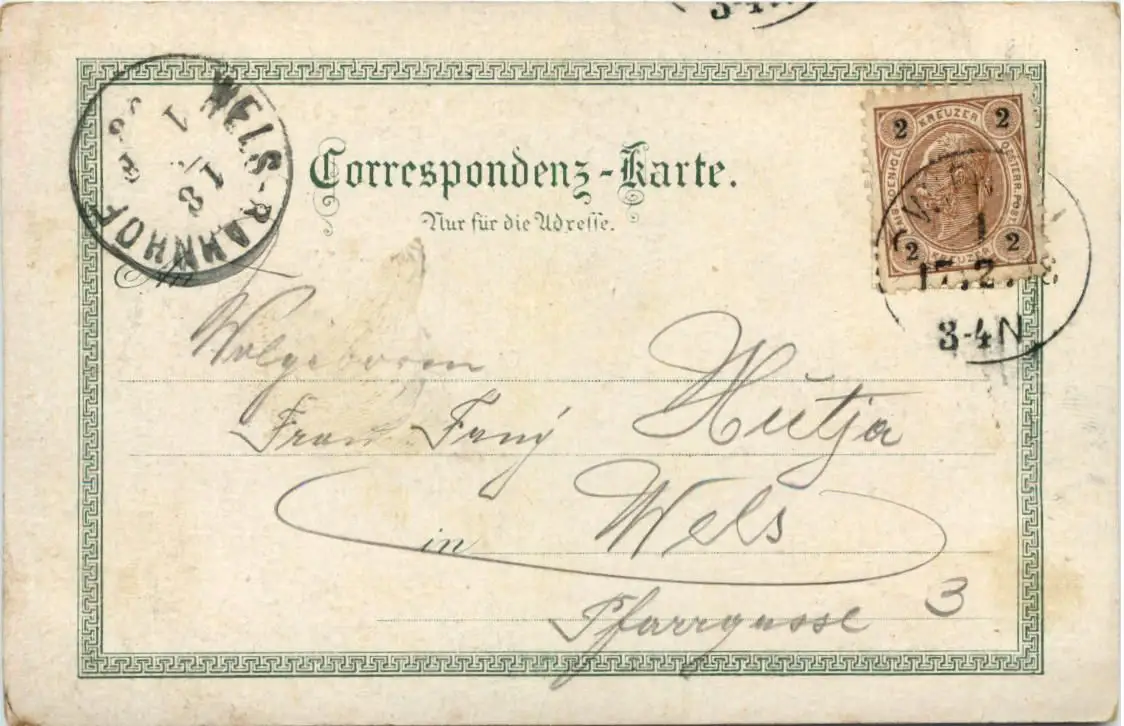 3-4N
WELS-BAHNHOF
1
18
Correspondenz-Karte.
Nur für die Adresse.
2 KREUZER 2
KAIS. KOENIGL. OESTERR. POST.
2 KREUZER 2
1
17.2.
3-4N
An
Wolgeboren
Frau Fany Hutja
in Wels
Pfarrgasse 3